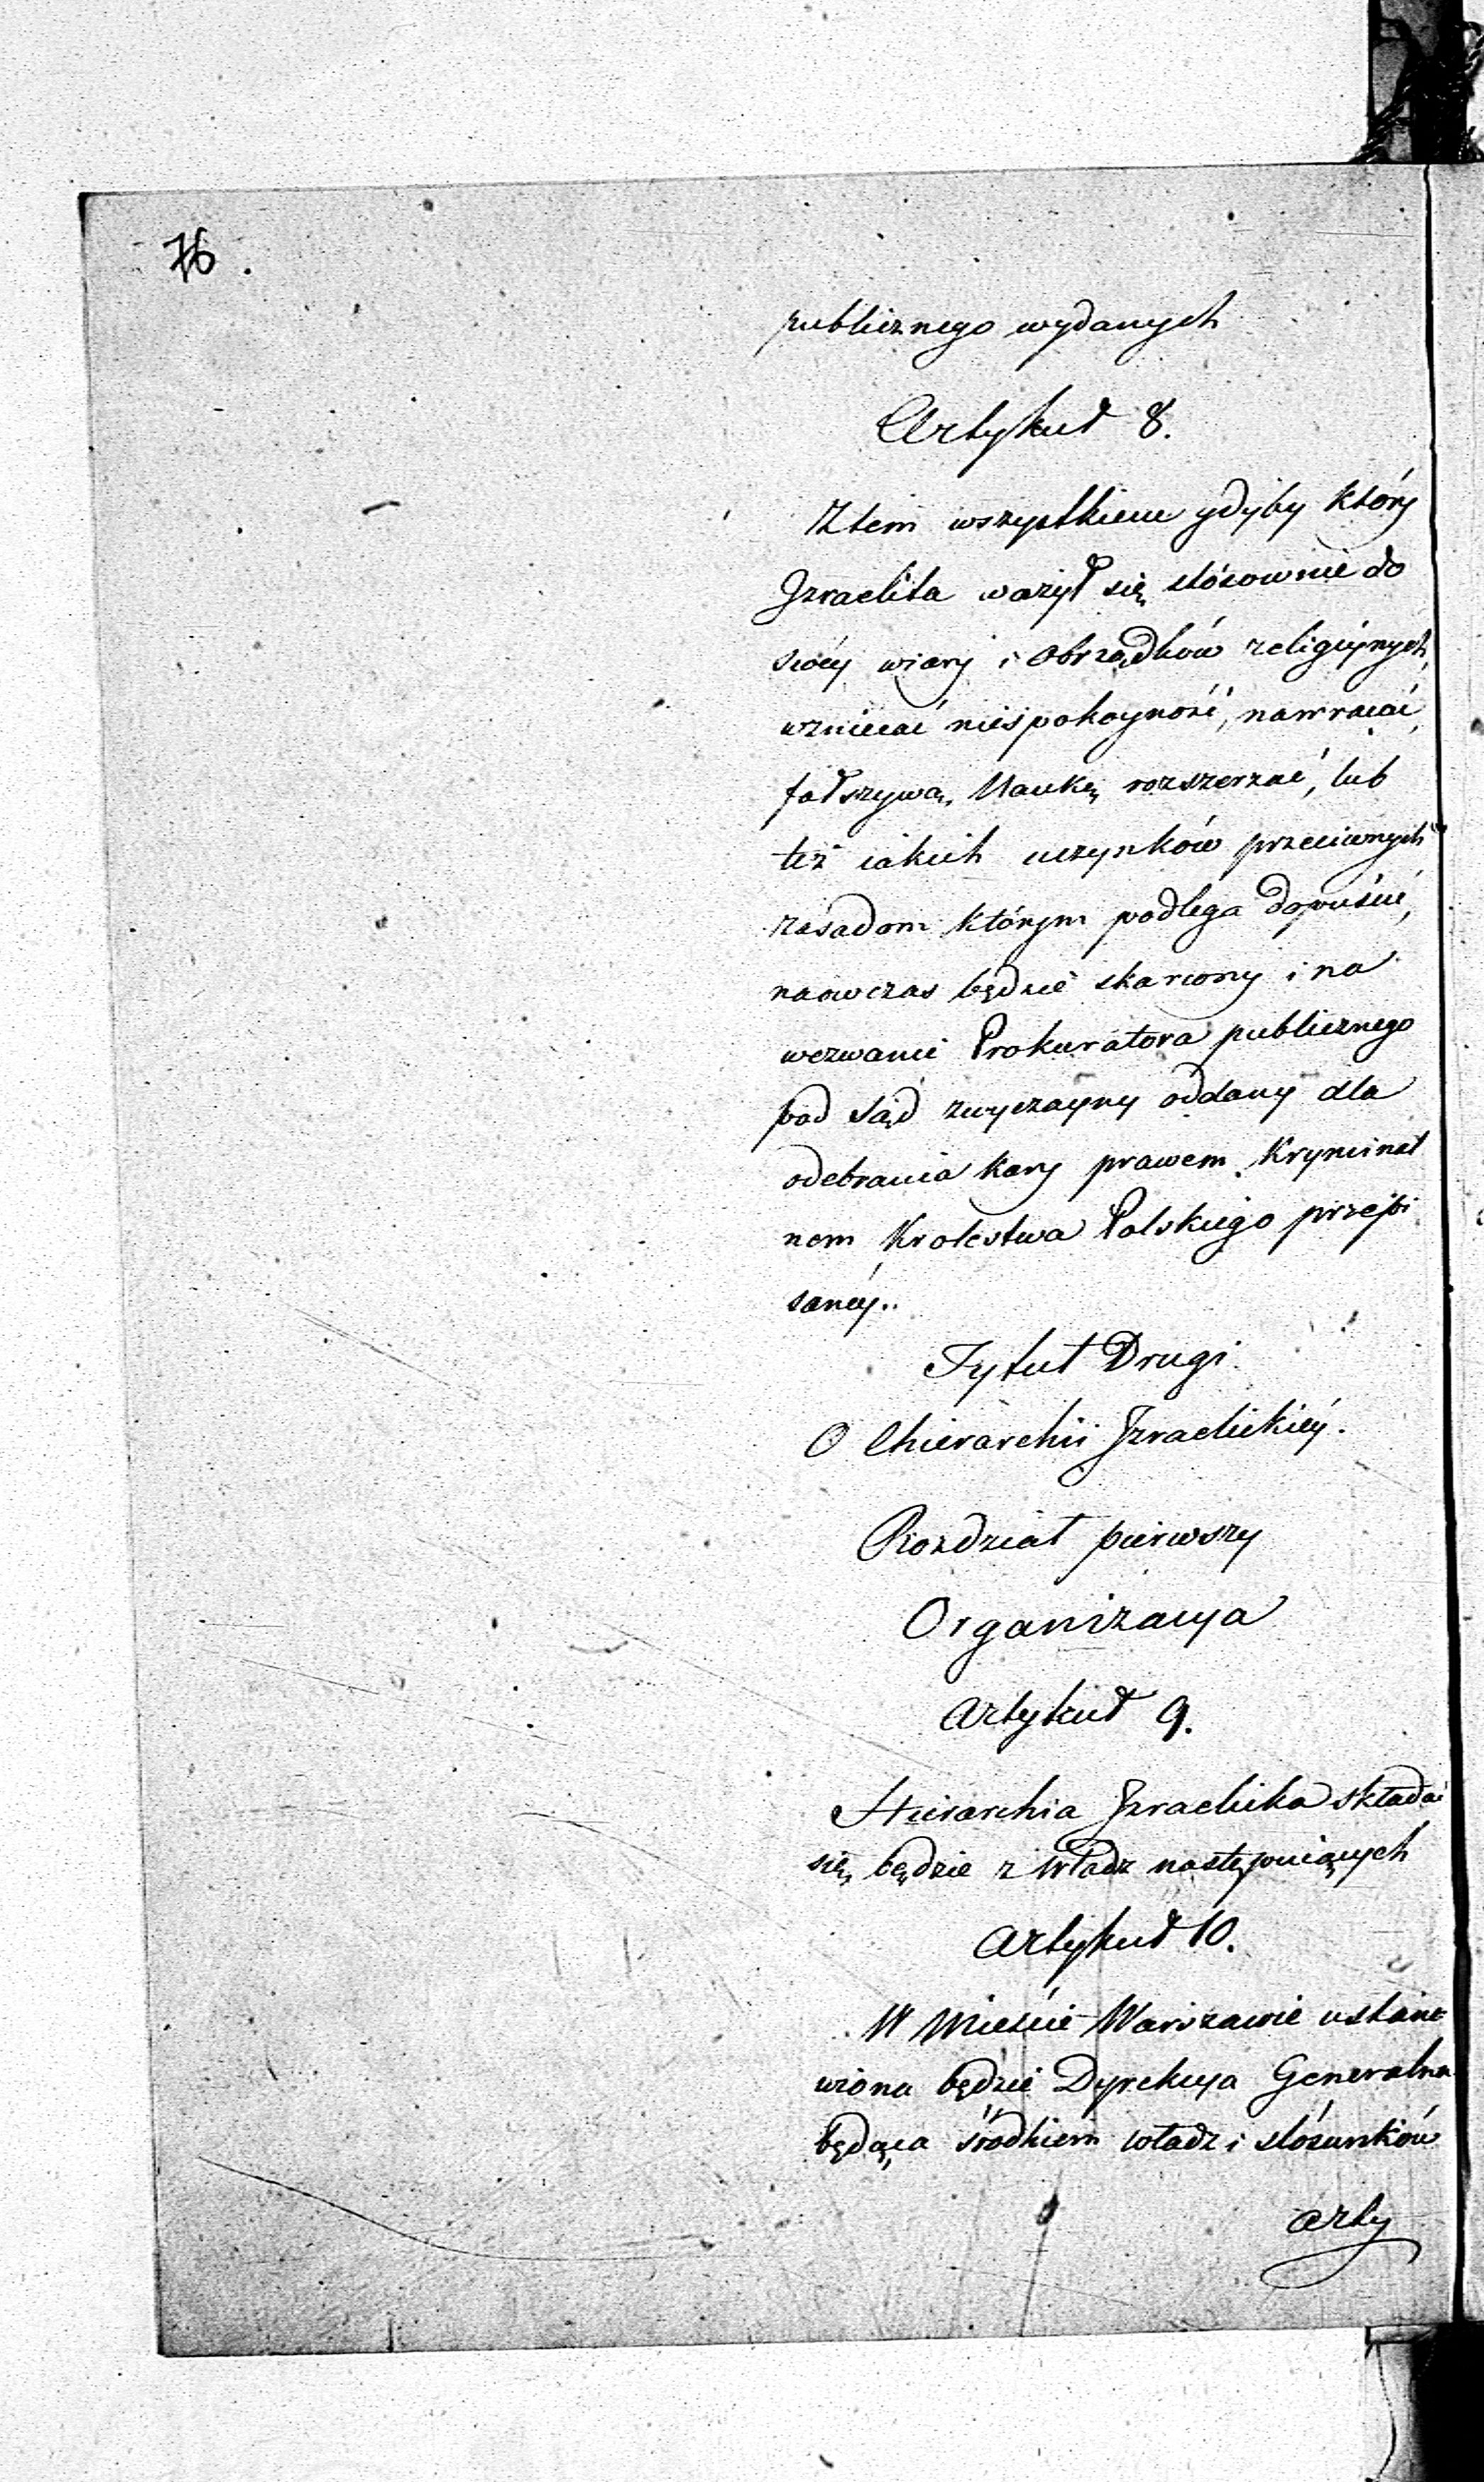 76.
publicznego wydanych
Artykuł 8.
Ztem wszystkiem gdyby który
Izraelita ważył się stósownie do
swéy wiary i obrządków religiynych,
wzniecać niespokoyność, nawracać,
fałszywą Naukę rozszerzać, lub
też iakich uczynków przeciwnych
zasadom którym podlega dopuścić,
naowczas będzie skarcony i na
wezwanie Prokuratora publicznego
pod Sąd zwyczayny oddany dla
odebrania kary prawem Kryminal
nem Krolestwa Polskiego przepi
sanéy..
Tytuł Drugi
O Chierarchii Izraelickiéy.
Rozdział pierwszy
Organizacya
Artykuł 9.
Hierarchia Izraelicka składać
się będzie z Władz następuiących
Artykuł 10.
W Mieście Warszawie ustano
wiona będzie Dyrekcya Generalna
będąca środkiem władz i stósunków
Arty